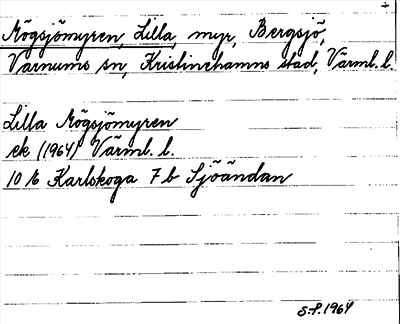 Mögsjömyren, Lilla, myr, Bergsjö,
Varnums sn, Kristinehamns stad, Värml. l.
Lilla Mögsjömyren
ek (1964) Värml. l.
10 b Karlskoga 7 b Sjöändan
S.P. 1964